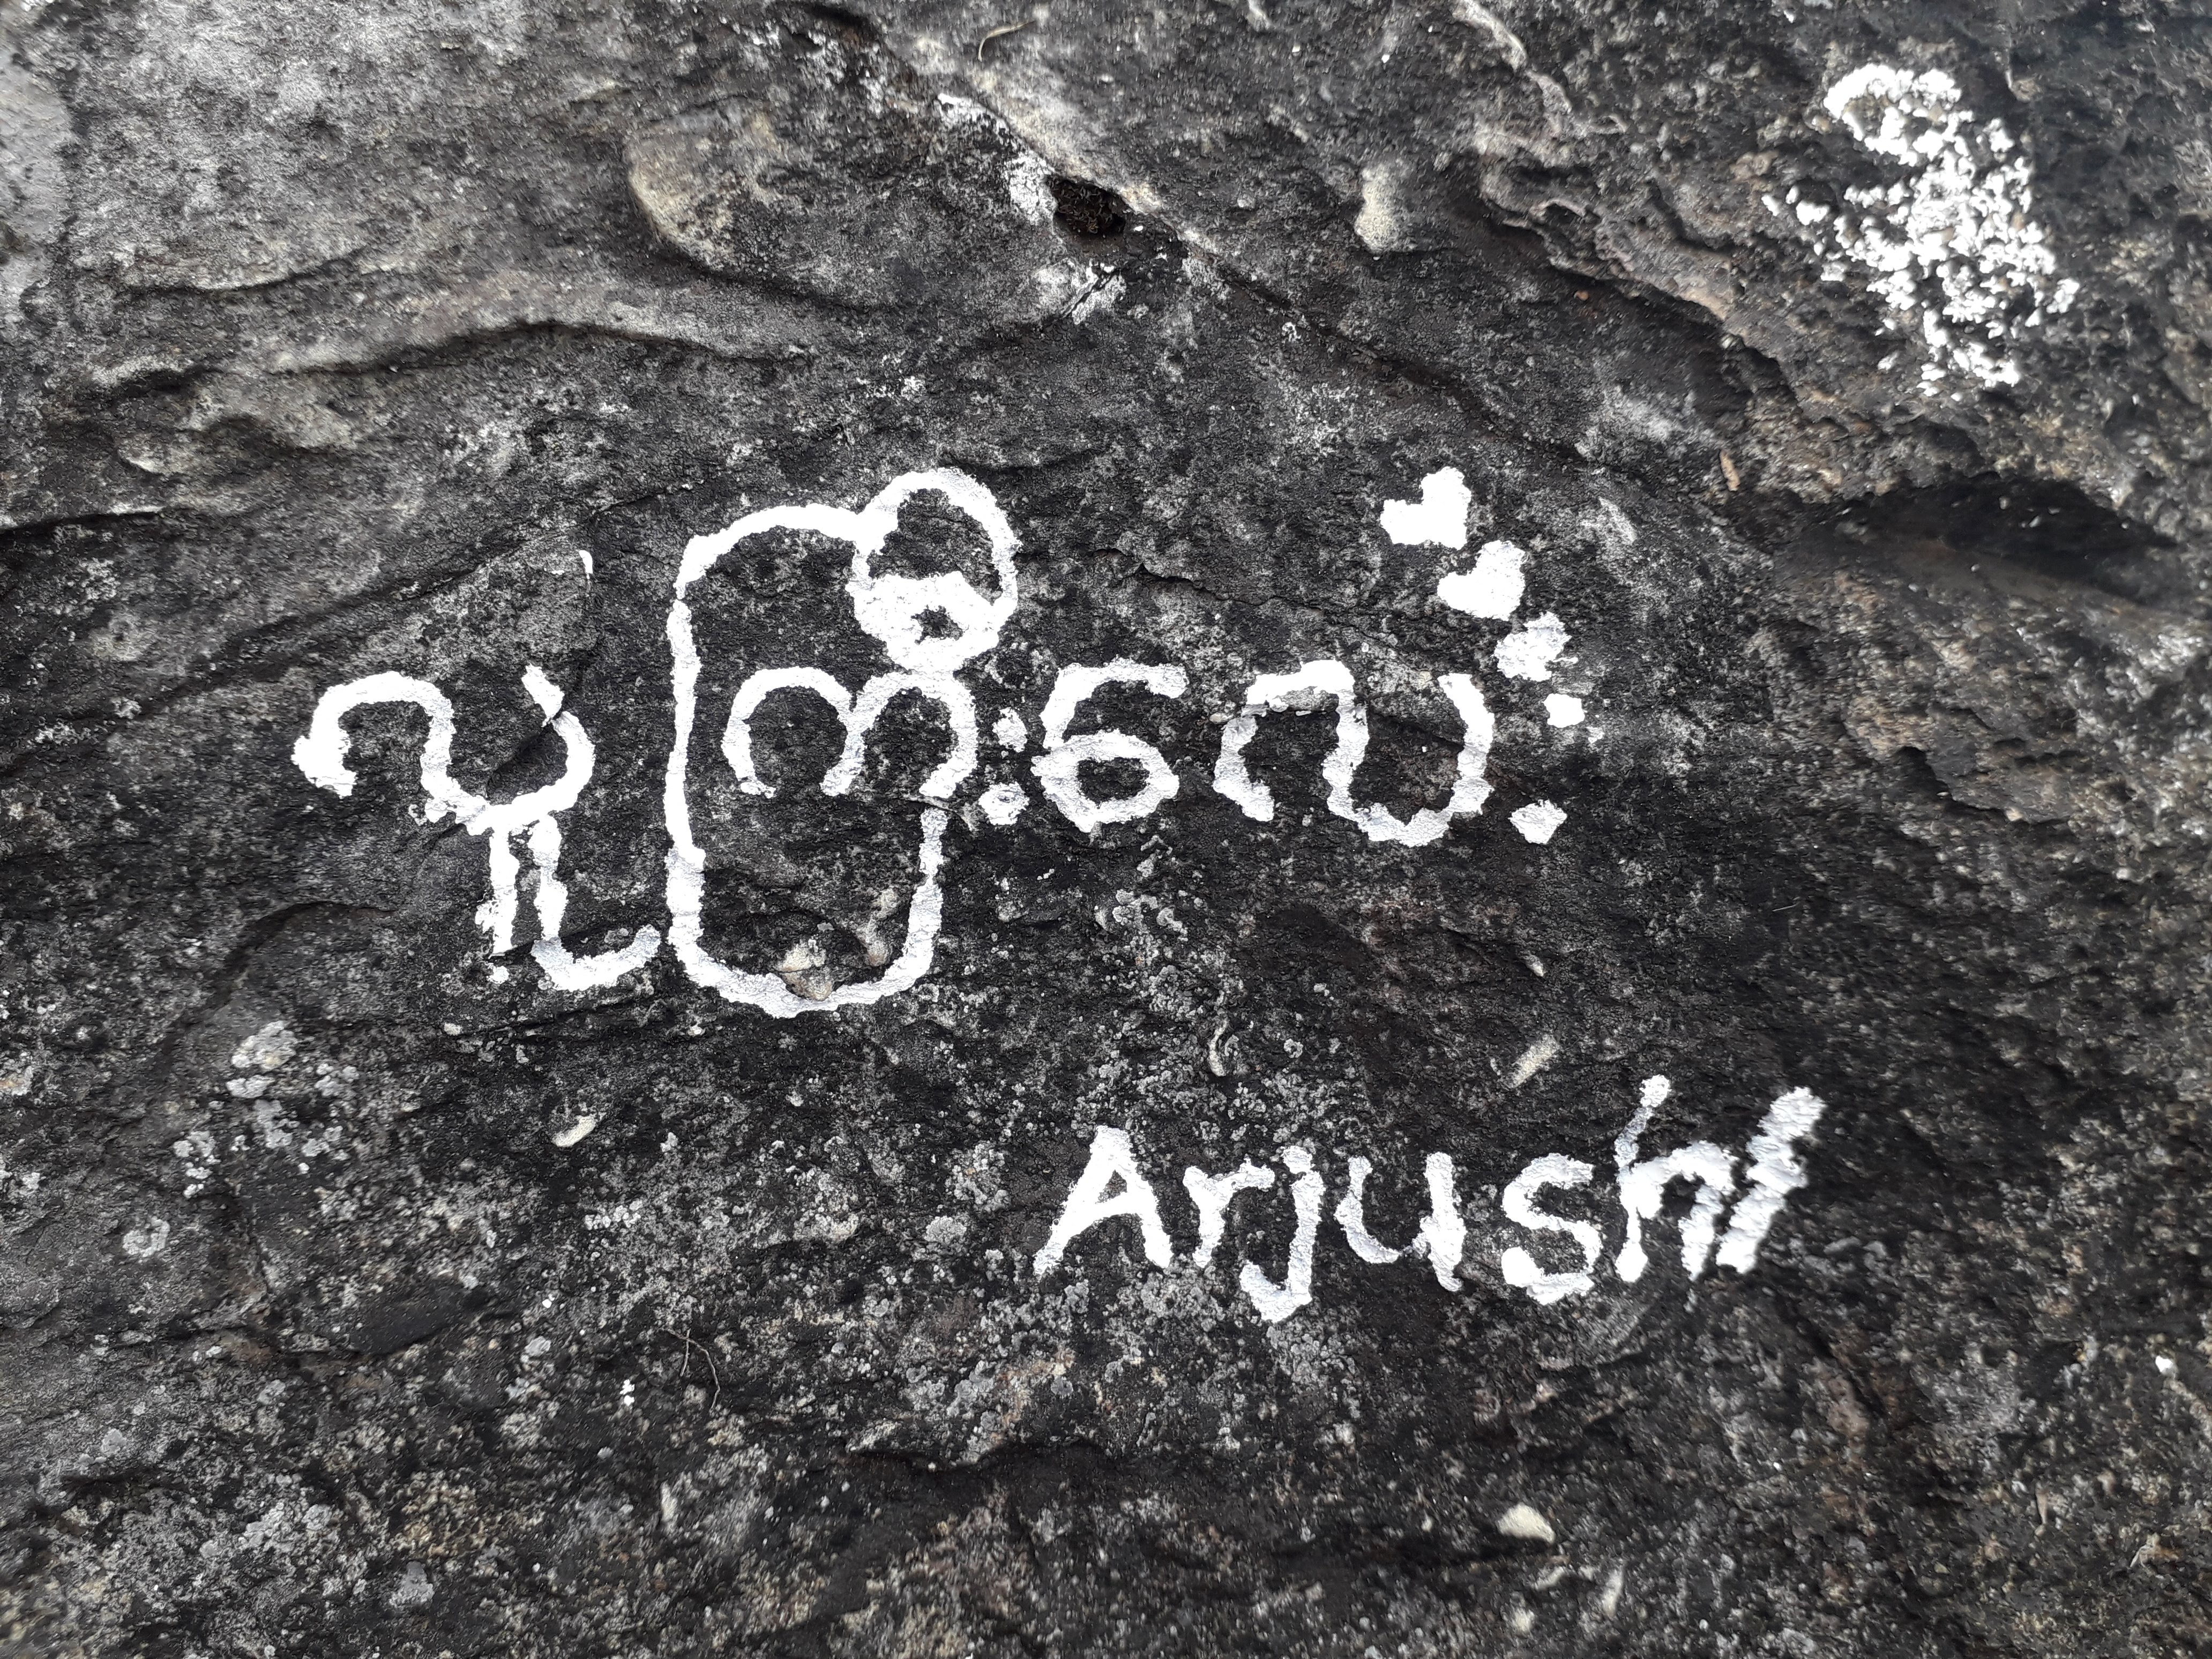 လူကြီးလေး
Arjushi